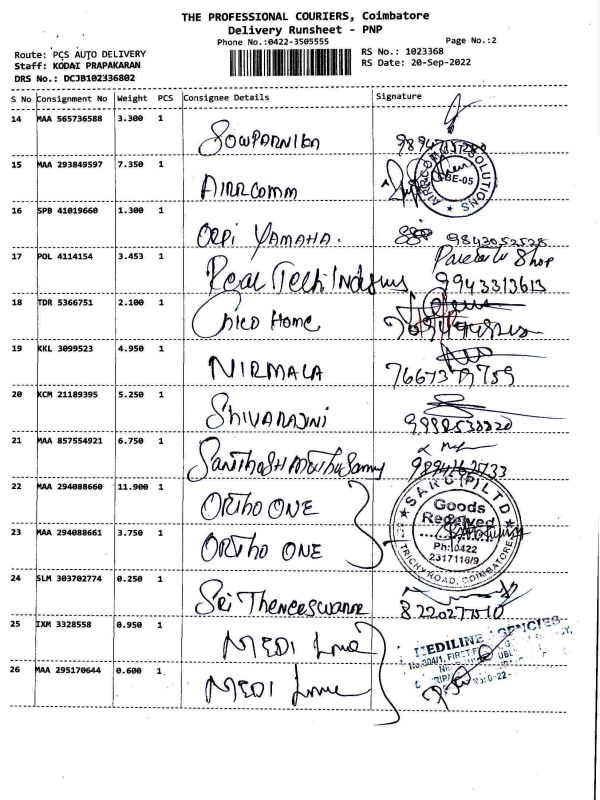 THE PROFESSIONAL COURIERS, Coimbatore
Delivery Runsheet - PNP
Phone No.:0422-3505555
Page No.:2
Route: PCS AUTO DELIVERY
RS No.: 1023368
Staff: KODAI PRAPAKARAN
RS Date: 20-Sep-2022
DRS No.: DCJB102336802
S No Consignment No Weight PCS Consignee Details Signature
14 MAA 565736588 3.300 1 Sowparnika
15 MAA 293849597 7.350 1 AIRRComm
CBE-05
SOLUTIONS
16 SPB 41019660 1.300 1 Orpi YAMAHA. 9843052528
17 POL 4114154 3.453 1 Real Tech 9943313613
Shop
18 TDR 5366751 2.100 1 Chico Home
19 KKL 3099523 4.950 1 NIRMALA
20 KCM 21189395 5.250 1 SHIVARAJNI
21 MAA 857554921 6.750 1
22 MAA 294088660 11.900 1 ORTHO ONE
SARC (P) LTD
Goods
Received
Ph: 0422
2317118/9
TRICHY ROAD, COIMBATORE
23 MAA 294088661 3.750 1 ORTHO ONE
24 SLM 303702774 0.250 1 Sri
25 IXM 3328558 0.950 1 MEDI Line
MEDILINE AGENCIES
26 MAA 295170644 0.600 1 MEDI Line